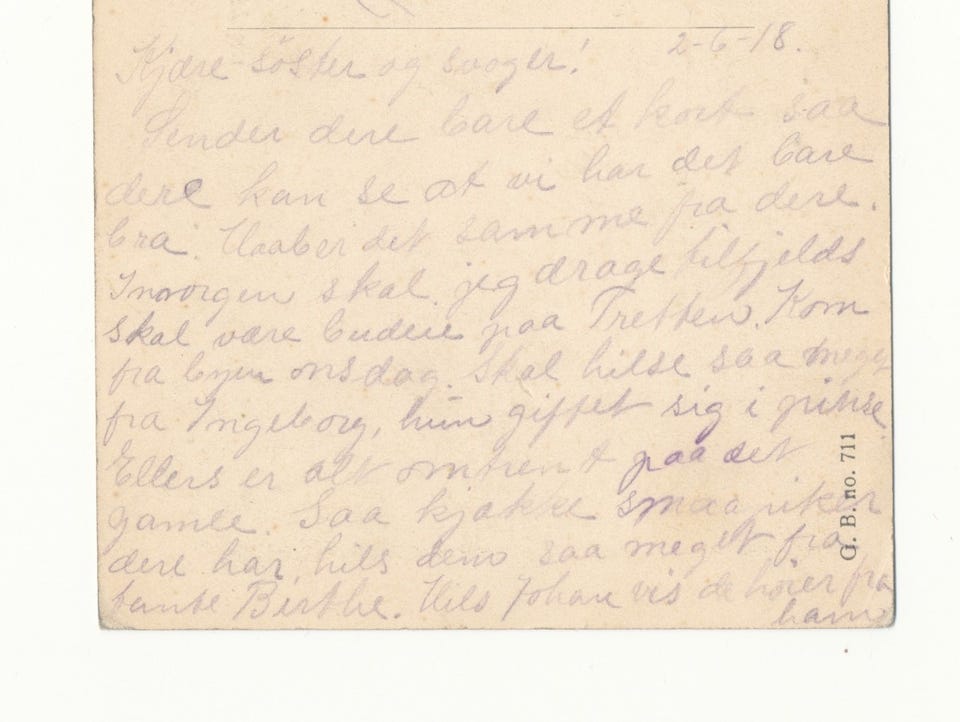 2-6-18.
Kjære söster og svoger!
Sender dere bare et kort saa
dere kan se at vi har det bare
bra. Haaber det samme fra dere.
Imorgen skal jeg drage tilfjelds
skal være budeie paa Tretten. Kom
fra byen onsdag. Skal hilse saa meget
fra Ingeborg, hun giftet sig i pinse.
Ellers er alt omtrent paa det
gamle. Saa kjække smaapiker
dere har, hils dem saa meget fra
tante Birthe. Hils Johan vis de hører fra
ham
G. B. no. 711